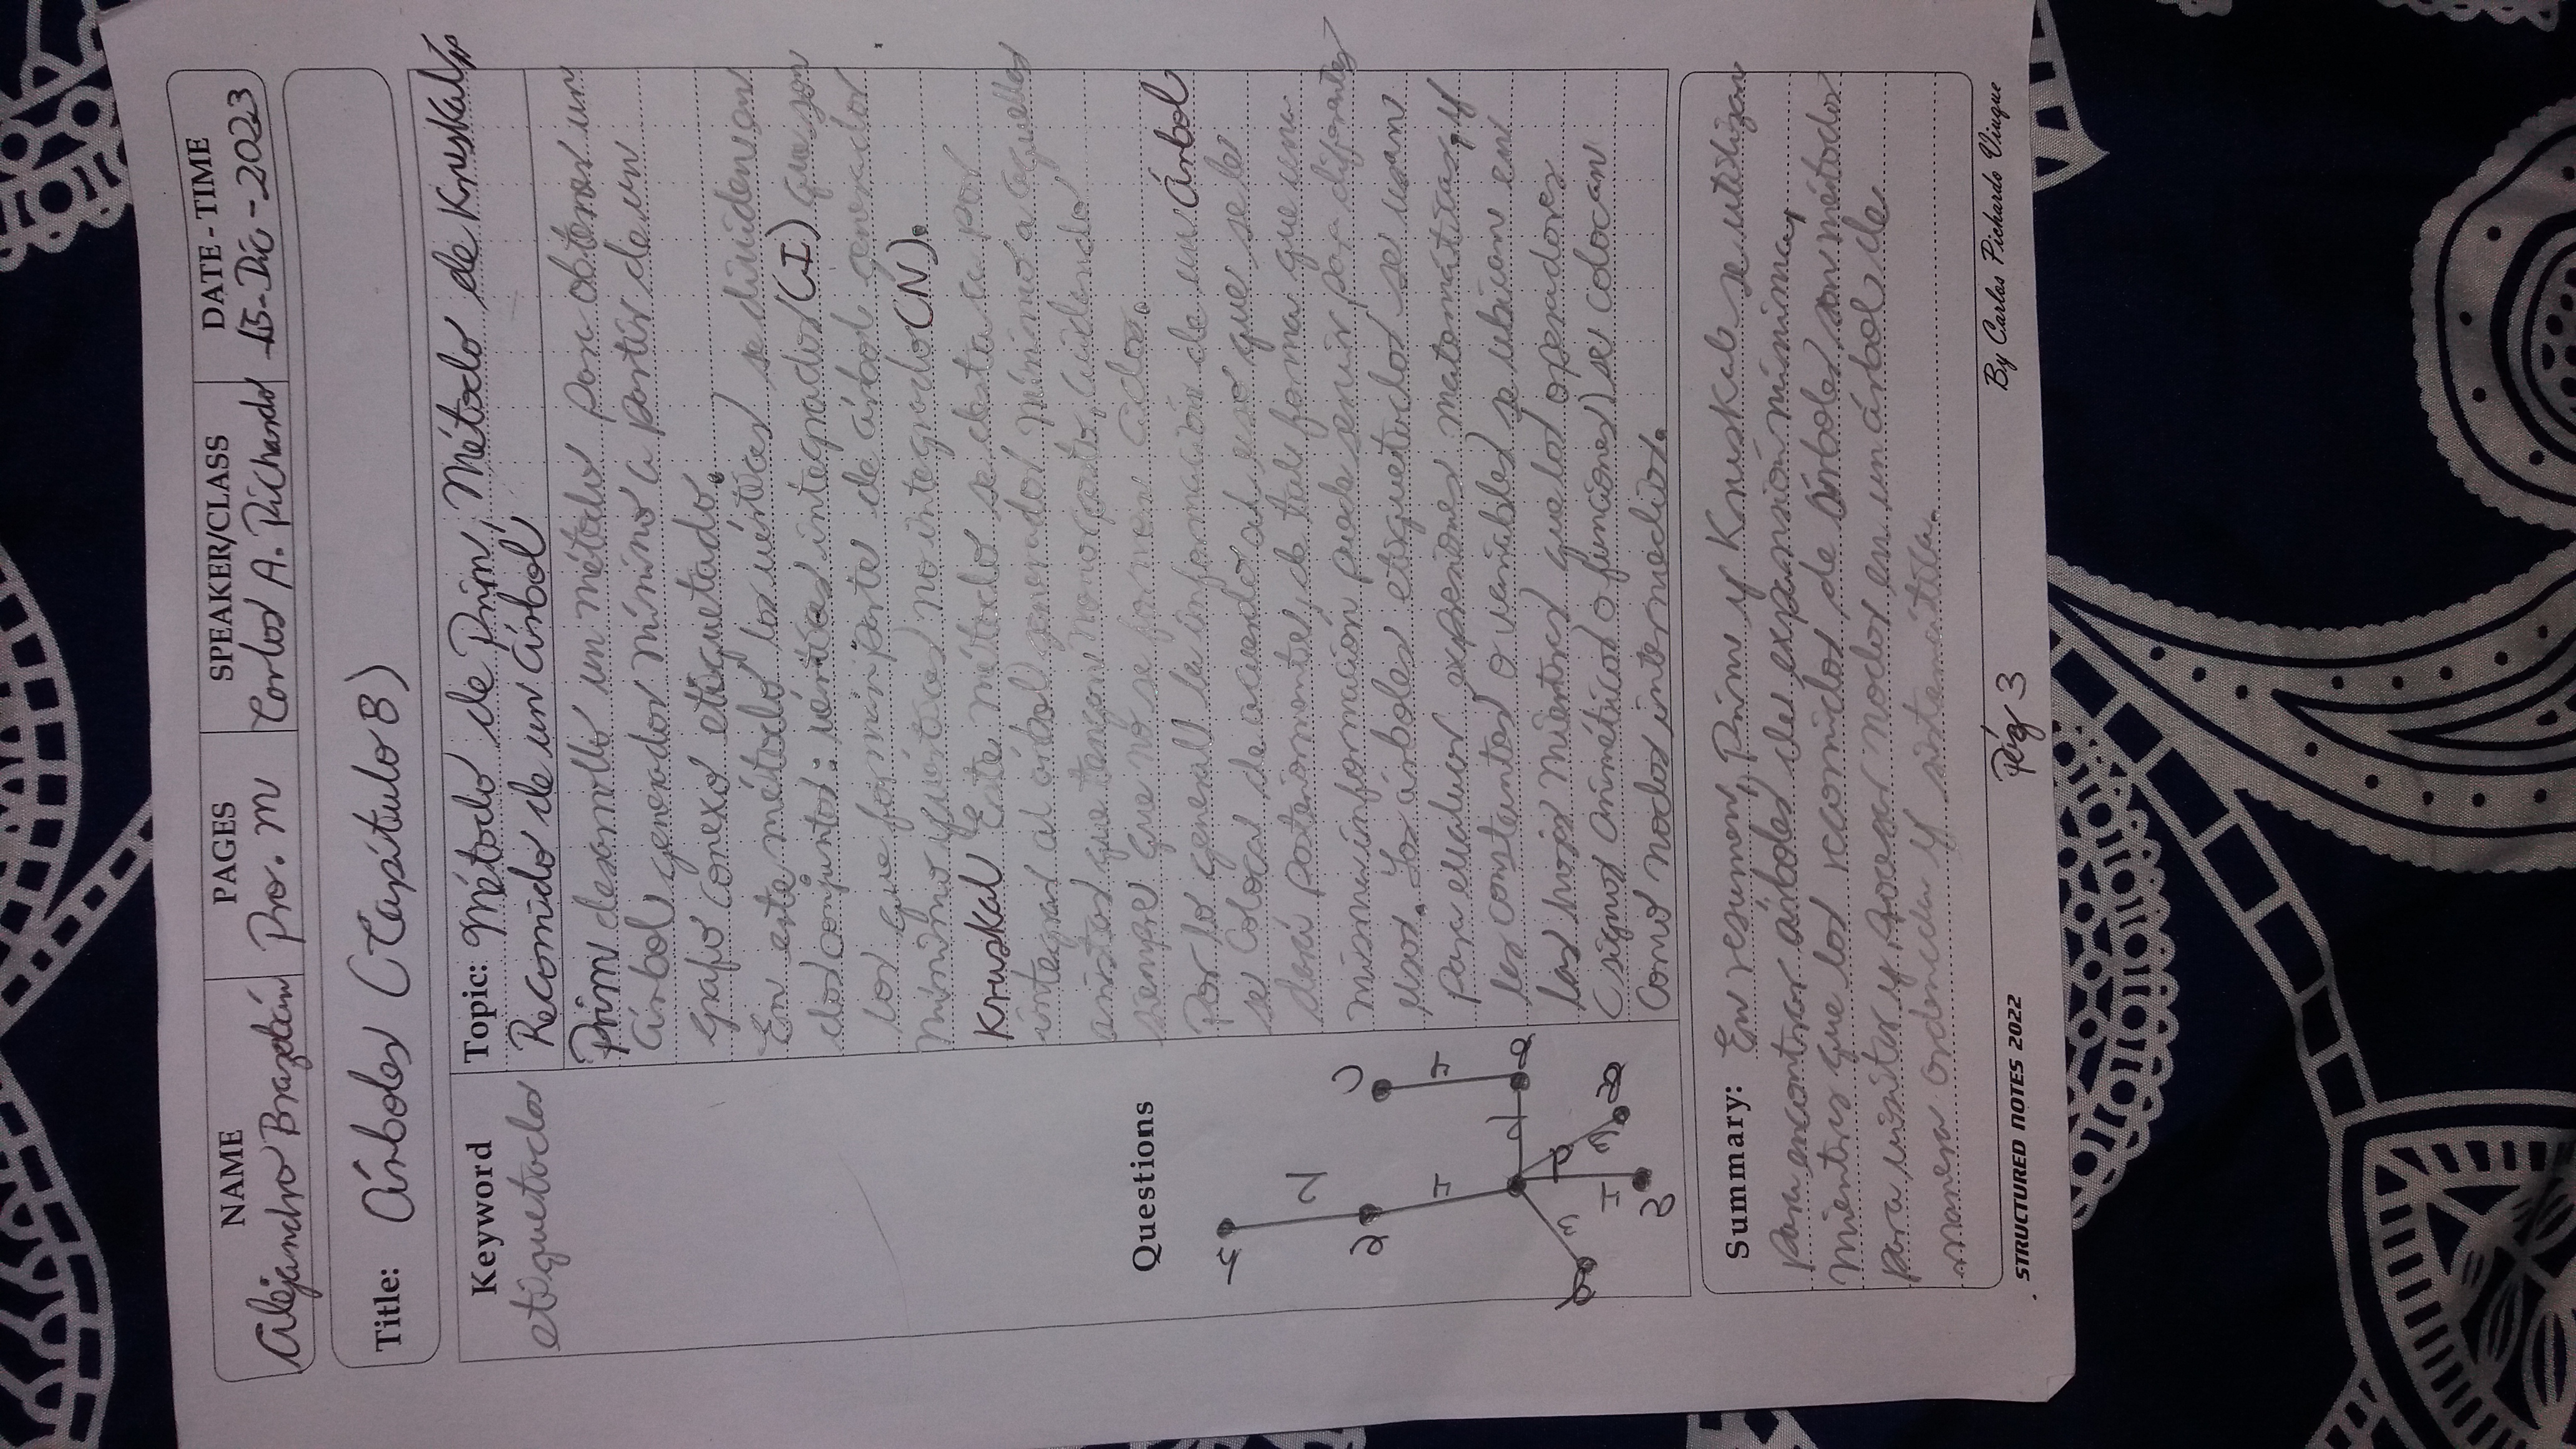 NAME PAGES SPEAKER/CLASS DATE-TIME
Alejandro Brazobán Pro. M Carlos A. Pichardo 15-Dic-2023
Title: Árboles (Capítulo 8)
Keyword
etiquetados
Topic: Método de Prim, Método de Kruskal,
Recorrido de un árbol
Prim desarrollo un método para obtener un
árbol generador mínimo a partir de un
grafo conexo etiquetado.
En este método los vértices se dividen en
dos conjuntos: vértices integrados (I) que son
los que forman parte de árbol generador
mínimo y vértices no integrado (N).
Kruskal Este método se destaca por
integrar al árbol generador mínimo a aquellas
aristas que tengan menor peso, cuidando
siempre que no se formen ciclos.
Por lo general la información de un Árbol
se coloca de acuerdo al uso que se le
dará posteriormente, de tal forma que una
misma información puede servir para diferentes
usos. Los árboles etiquetados se usan
para evaluar expresiones matemáticas, y
las constantes o variables se ubican en
las hojas mientras que los operadores
(signos aritméticos o funciones) se colocan
como nodos intermedios.
Questions
h
2
a
c
4
4
2
b
g
3
d
4
3
Summary: En resumen, Prim y Kruskal se utilizan
para encontrar árboles de expansión mínima,
mientras que los recorridos de árboles son métodos
para visitar y procesar nodos en un árbol de
manera ordenada y sistemática.
STRUCTURED NOTES 2022 Pág 3 By Carlos Pichardo Viuque